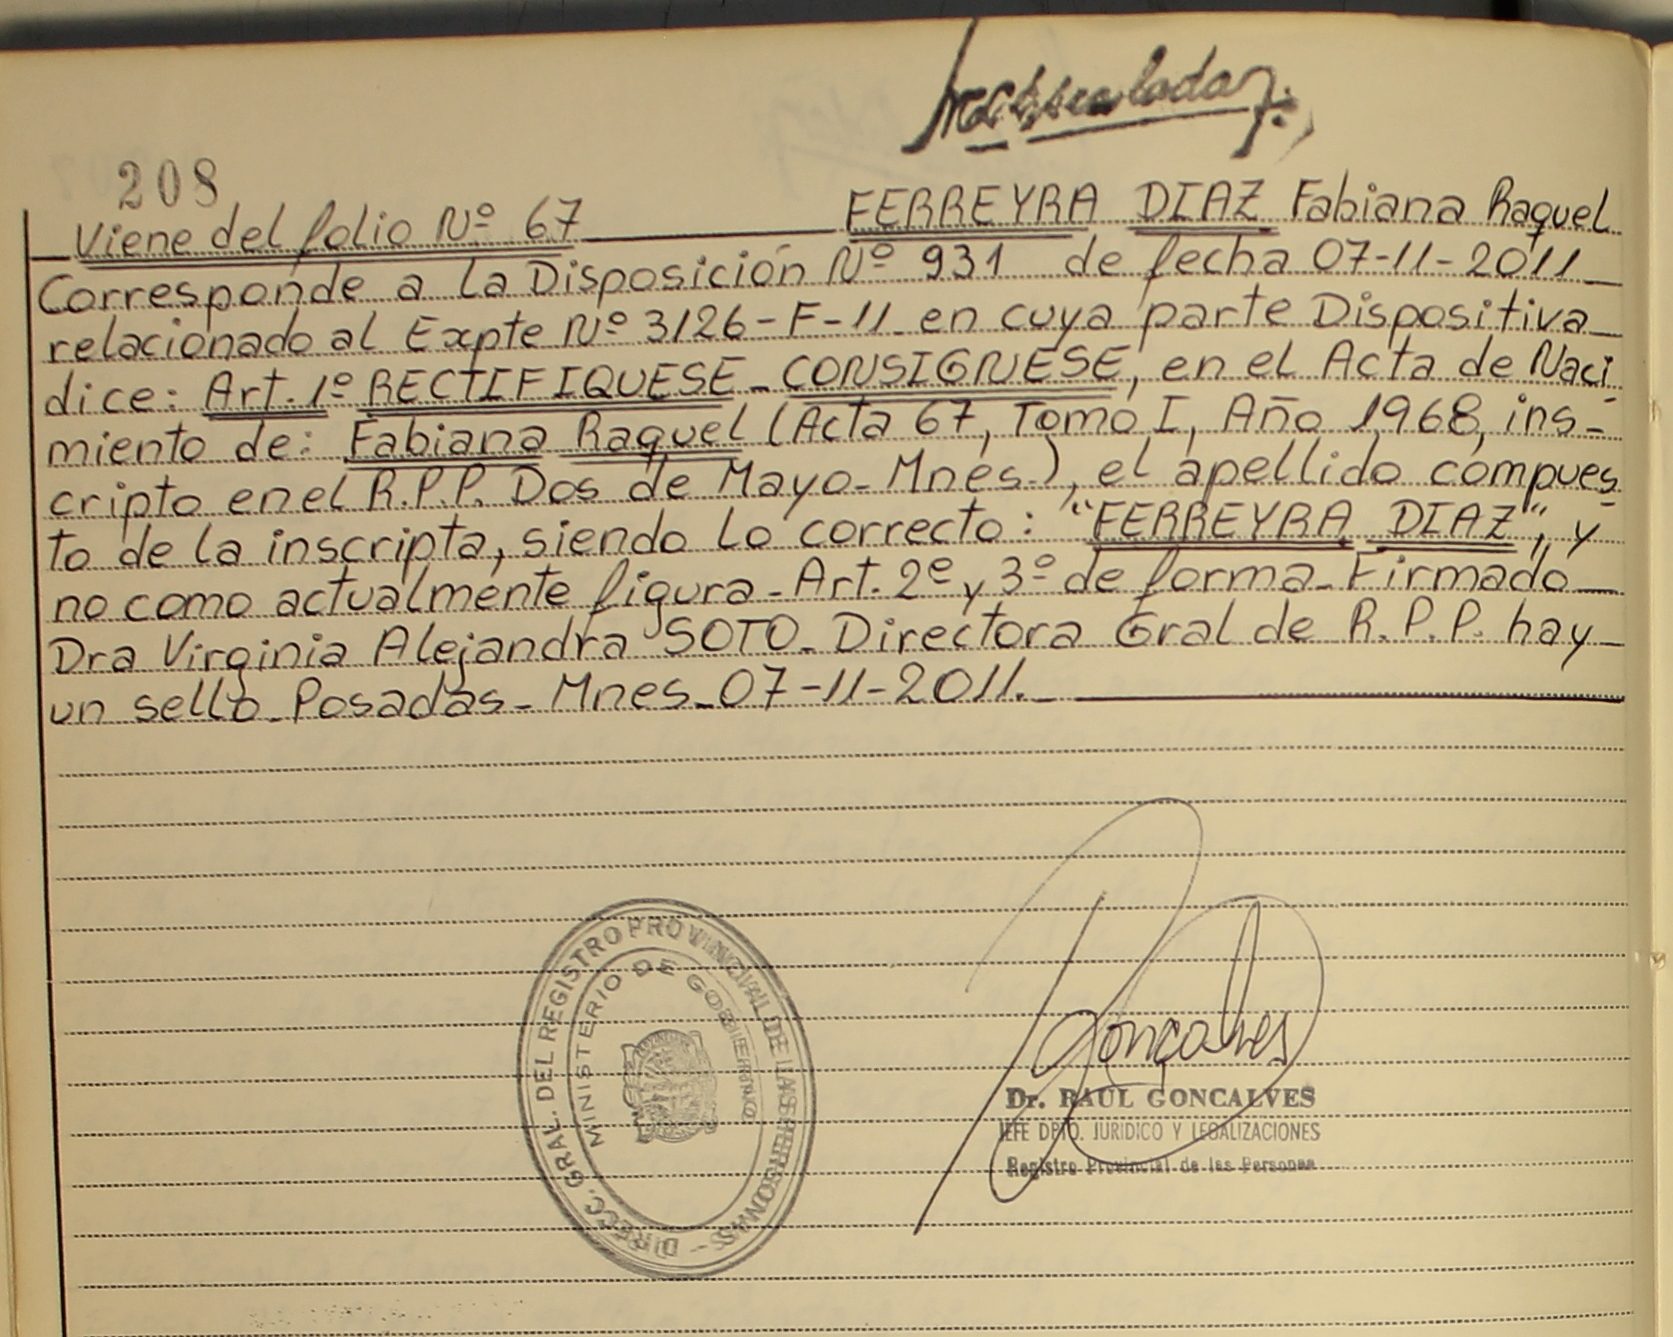 208
Viene del folio Nº 67 FERREYRA DIAZ Fabiana Raquel
Corresponde a la Disposición Nº 931 de fecha 07-11-2011
relacionado al Expte Nº 3126-F-11 en cuya parte Dispositiva
dice: Art. 1º RECTIFIQUESE - CONSIGNESE, en el Acta de Naci
miento de: Fabiana Raquel (Acta 67, Tomo I, Año 1968, ins-
cripto en el R.P.P. Dos de Mayo - Mnes.), el apellido compues
to de la inscripta, siendo lo correcto: "FERREYRA DIAZ", y
no como actualmente figura - Art. 2º y 3º de forma - Firmado
Dra Virginia Alejandra SOTO - Directora Gral de R.P.P. hay
un sello - Posadas - Mnes - 07-11-2011.
DIRECC. GRAL. DEL REGISTRO PROVINCIAL DE LAS PERSONAS -
MINISTERIO DE GOBIERNO
Gonçalves
Dr. RAUL GONCALVES
JEFE DPTO. JURIDICO Y LEGALIZACIONES
Registro Provincial de las Personas